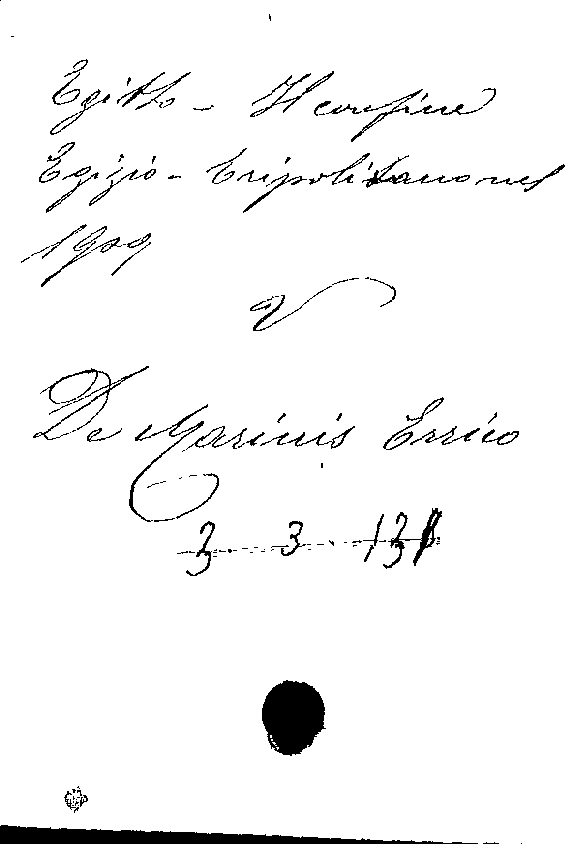 Egitto - Il confine
Egizio - tripolitano nel
1909
V
De Marinis Errico
3 3